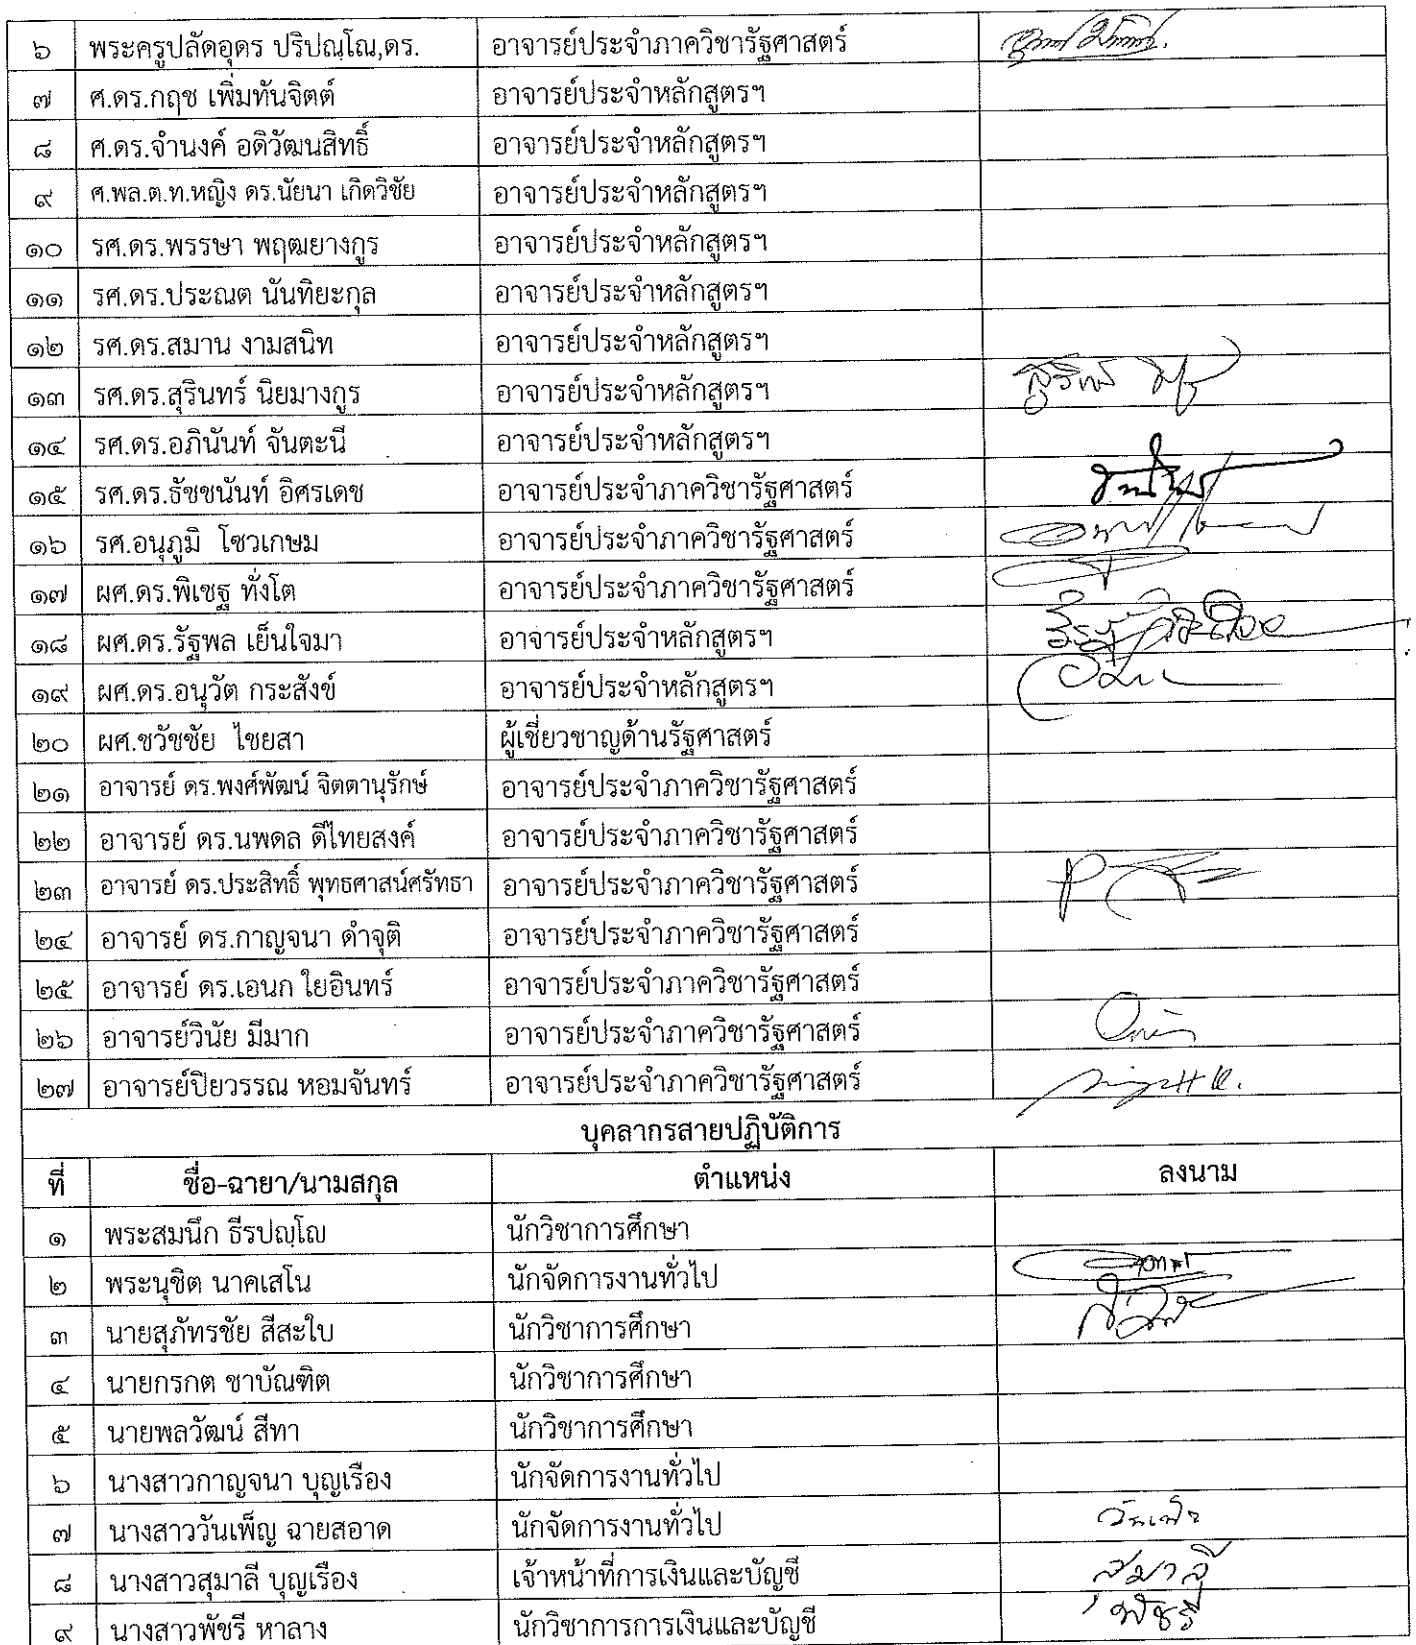 ๖ พระครูปลัดอุดร ปริปณฺโณ,ดร. อาจารย์ประจำภาควิชารัฐศาสตร์
๗ ศ.ดร.กฤช เพิ่มทันจิตต์ อาจารย์ประจำหลักสูตรฯ
๘ ศ.ดร.จำนงค์ อดิวัฒนสิทธิ์ อาจารย์ประจำหลักสูตรฯ
๙ ศ.พล.ต.ท.หญิง ดร.นัยนา เกิดวิชัย อาจารย์ประจำหลักสูตรฯ
๑๐ รศ.ดร.พรรษา พฤฒยางกูร อาจารย์ประจำหลักสูตรฯ
๑๑ รศ.ดร.ประณต นันทิยะกุล อาจารย์ประจำหลักสูตรฯ
๑๒ รศ.ดร.สมาน งามสนิท อาจารย์ประจำหลักสูตรฯ
๑๓ รศ.ดร.สุรินทร์ นิยมางกูร อาจารย์ประจำหลักสูตรฯ
๑๔ รศ.ดร.อภินันท์ จันตะนี อาจารย์ประจำหลักสูตรฯ
๑๕ รศ.ดร.ธัชชนันท์ อิศรเดช อาจารย์ประจำภาควิชารัฐศาสตร์
๑๖ รศ.อนุภูมิ โซวเกษม อาจารย์ประจำภาควิชารัฐศาสตร์
๑๗ ผศ.ดร.พิเชฐ ทั่งโต อาจารย์ประจำภาควิชารัฐศาสตร์
๑๘ ผศ.ดร.รัฐพล เย็นใจมา อาจารย์ประจำหลักสูตรฯ
๑๙ ผศ.ดร.อนุวัต กระสังข์ อาจารย์ประจำหลักสูตรฯ
๒๐ ผศ.ชวัชชัย ไชยสา ผู้เชี่ยวชาญด้านรัฐศาสตร์
๒๑ อาจารย์ ดร.พงศ์พัฒน์ จิตตานุรักษ์ อาจารย์ประจำภาควิชารัฐศาสตร์
๒๒ อาจารย์ ดร.นพดล ดีไทยสงค์ อาจารย์ประจำภาควิชารัฐศาสตร์
๒๓ อาจารย์ ดร.ประสิทธิ์ พุทธศาสน์ศรัทธา อาจารย์ประจำภาควิชารัฐศาสตร์
๒๔ อาจารย์ ดร.กาญจนา ดำจุติ อาจารย์ประจำภาควิชารัฐศาสตร์
๒๕ อาจารย์ ดร.เอนก ใยอินทร์ อาจารย์ประจำภาควิชารัฐศาสตร์
๒๖ อาจารย์วินัย มีมาก อาจารย์ประจำภาควิชารัฐศาสตร์
๒๗ อาจารย์ปิยวรรณ หอมจันทร์ อาจารย์ประจำภาควิชารัฐศาสตร์
บุคลากรสายปฏิบัติการ
ที่ ชื่อ-ฉายา/นามสกุล ตำแหน่ง ลงนาม
๑ พระสมนึก ธีรปญฺโญ นักวิชาการศึกษา
๒ พระนุชิต นาคเสโน นักจัดการงานทั่วไป
๓ นายสุภัทรชัย สีสะใบ นักวิชาการศึกษา
๔ นายกรกต ชาบัณฑิต นักวิชาการศึกษา
๕ นายพลวัฒน์ สีทา นักวิชาการศึกษา
๖ นางสาวกาญจนา บุญเรือง นักจัดการงานทั่วไป
๗ นางสาววันเพ็ญ ฉายสอาด นักจัดการงานทั่วไป วันเพ็ญ
๘ นางสาวสุมาลี บุญเรือง เจ้าหน้าที่การเงินและบัญชี สุมาลี
๙ นางสาวพัชรี หาลาง นักวิชาการการเงินและบัญชี พัชรี